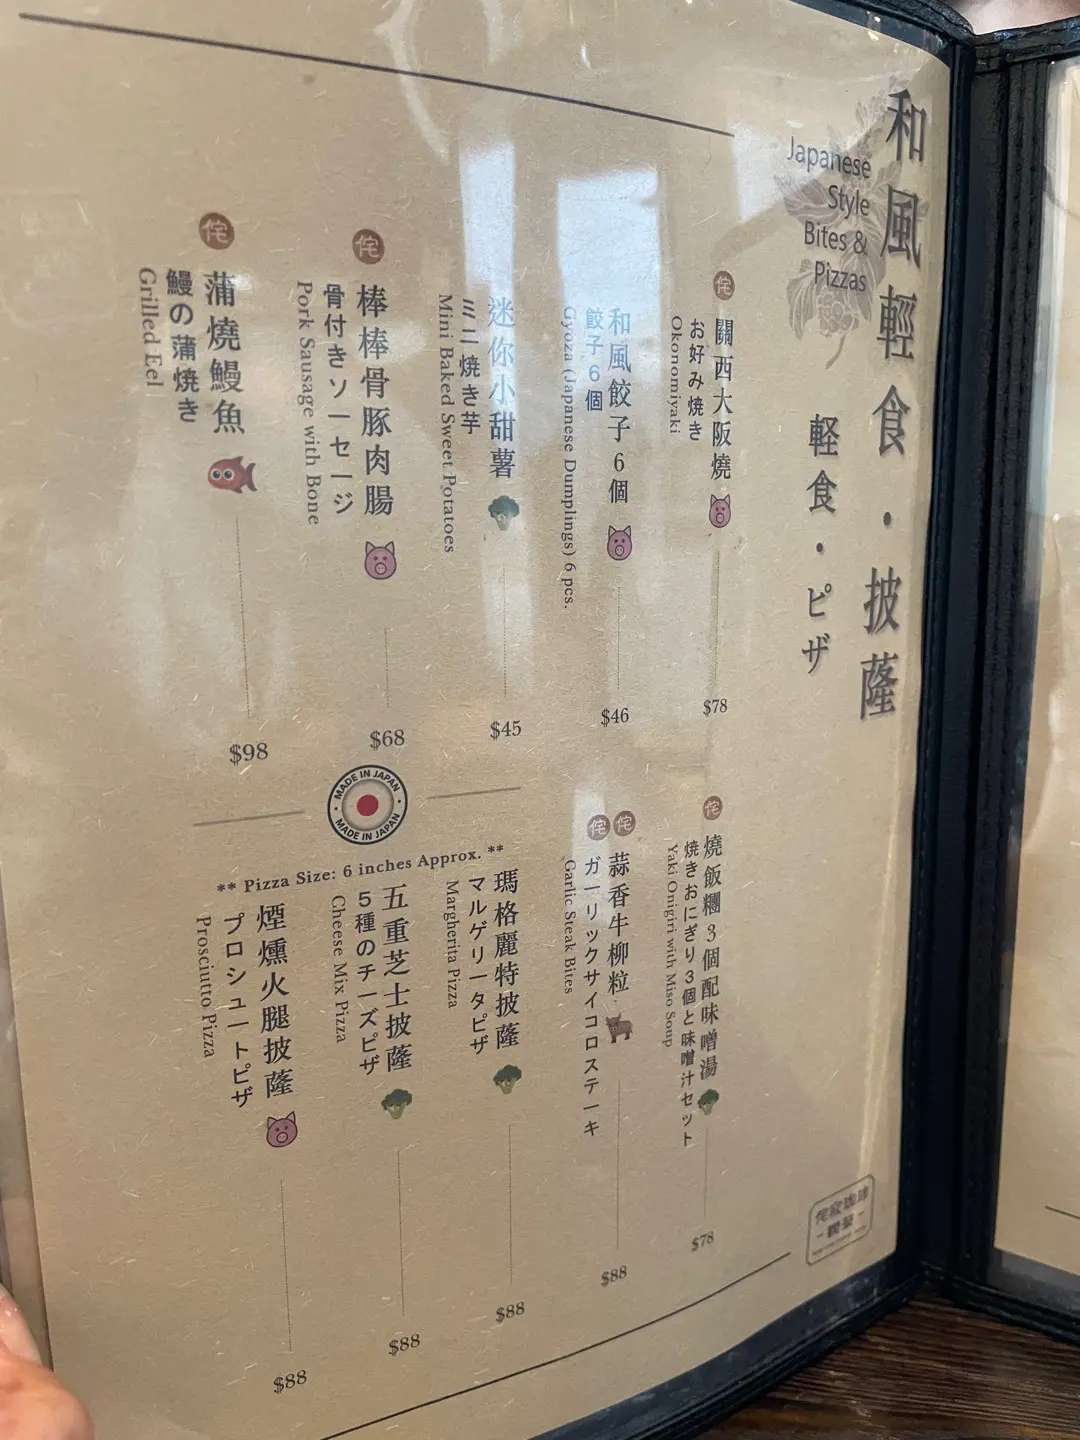 和風輕食・披薩
軽食・ピザ
Japanese
Style
Bites &
Pizzas
侘
關西大阪燒
お好み焼き
Okonomiyaki
$78
和風餃子6個
餃子6個
Gyoza (Japanese Dumplings) 6 pcs.
$46
迷你小甜薯
ミニ焼き芋
Mini Baked Sweet Potatoes
$45
侘
棒棒骨豚肉腸
骨付きソーセージ
Pork Sausage with Bone
$68
侘
蒲燒鰻魚
鰻の蒲焼き
Grilled Eel
$98
侘
燒飯糰3個配味噌湯
焼きおにぎり3個と味噌汁セット
Yaki Onigiri with Miso Soup
$78
侘 侘
蒜香牛柳粒
ガーリックサイコロステーキ
Garlic Steak Bites
$88
MADE IN JAPAN
MADE IN JAPAN
** Pizza Size: 6 inches Approx. **
瑪格麗特披薩
マルゲリータピザ
Margherita Pizza
$88
五重芝士披薩
5種のチーズピザ
Cheese Mix Pizza
$88
煙燻火腿披薩
プロシュートピザ
Prosciutto Pizza
$88